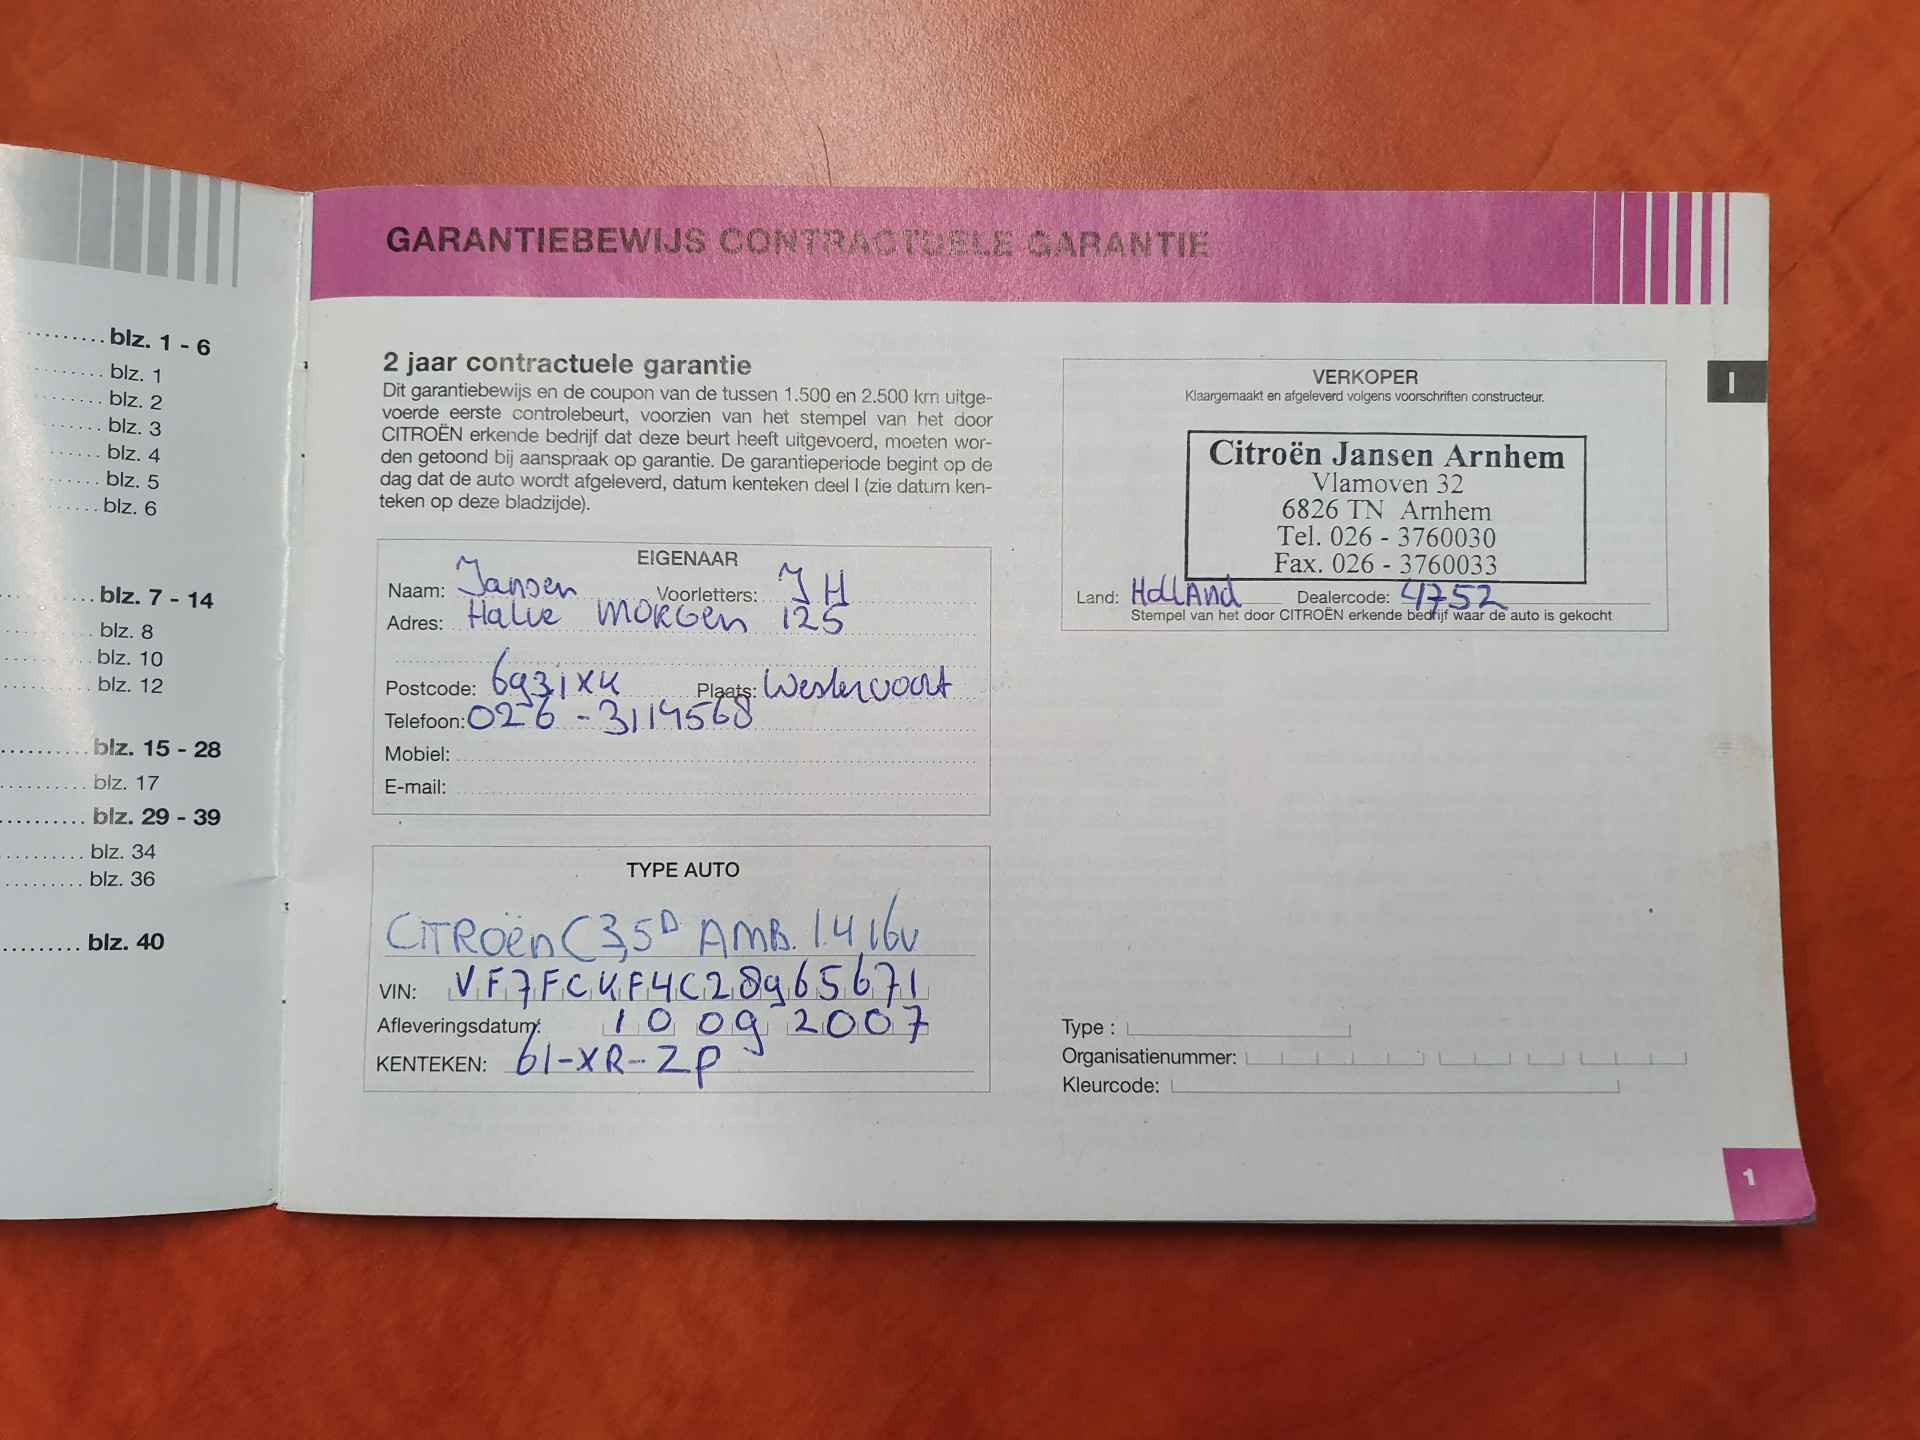 blz. 1 - 6
blz. 1
blz. 2
blz. 3
blz. 4
blz. 5
blz. 6
blz. 7 - 14
blz. 8
blz. 10
blz. 12
blz. 15 - 28
blz. 17
blz. 29 - 39
blz. 34
blz. 36
blz. 40
GARANTIEBEWIJS CONTRACTUELE GARANTIE
2 jaar contractuele garantie
Dit garantiebewijs en de coupon van de tussen 1.500 en 2.500 km uitge-
voerde eerste controlebeurt, voorzien van het stempel van het door
CITROËN erkende bedrijf dat deze beurt heeft uitgevoerd, moeten wor-
den getoond bij aanspraak op garantie. De garantieperiode begint op de
dag dat de auto wordt afgeleverd, datum kenteken deel I (zie datum ken-
teken op deze bladzijde).
EIGENAAR
Naam: Jansen Voorletters: J H
Adres: Halve Morgen 125
Postcode: 6931XK Plaats: Westervoort
Telefoon: 026 - 3114568
Mobiel:
E-mail:
TYPE AUTO
CITROën C3,5D AMB. 1.4 16v
VIN: VF7FCKF4C28965671
Afleveringsdatum: 10 09 2007
KENTEKEN: 61-XR-ZP
VERKOPER
Klaargemaakt en afgeleverd volgens voorschriften constructeur.
Citroën Jansen Arnhem
Vlamoven 32
6826 TN Arnhem
Tel. 026 - 3760030
Fax. 026 - 3760033
Land: HollAnd Dealercode: 4752
Stempel van het door CITROËN erkende bedrijf waar de auto is gekocht
I
Type :
Organisatienummer:
Kleurcode:
1